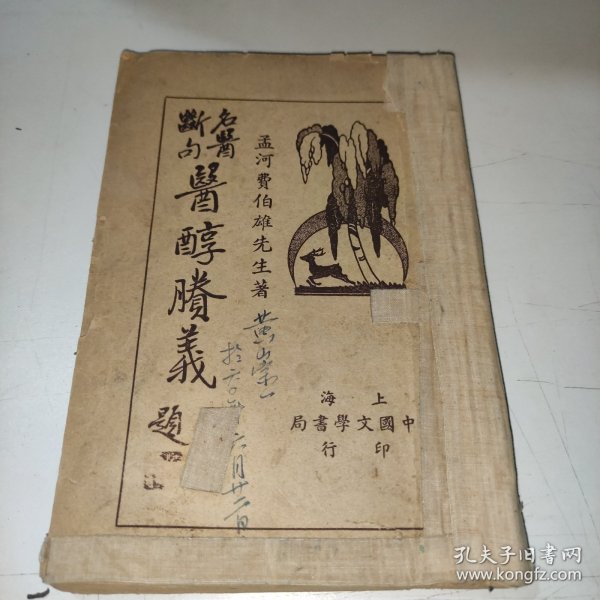 孟河費伯雄先生著
名醫
斷句
醫醇賸義
題
上海
中國文學書局
印行
六月廿二日
孔夫子旧书网
www.kongfz.com